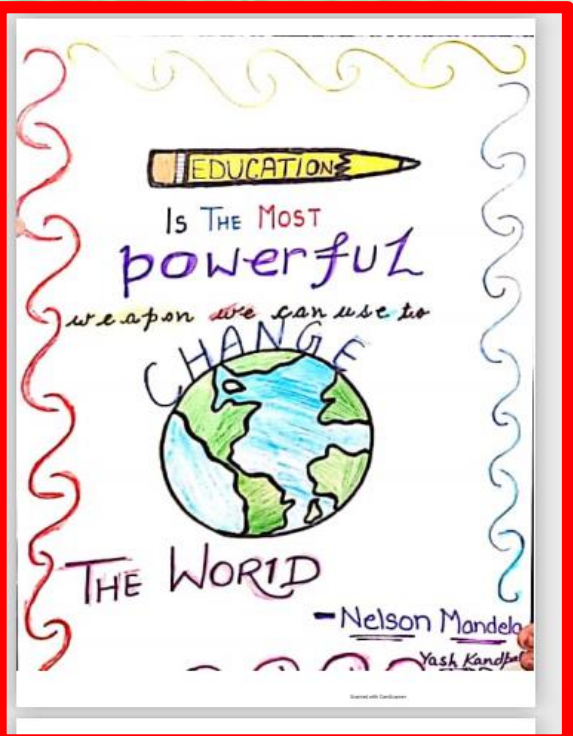 EDUCATION
Is THE MOST
powerful
weapon we can use to
CHANGE
THE WORLD
-Nelson Mandela
Yash Kandpal
Scanned with CamScanner